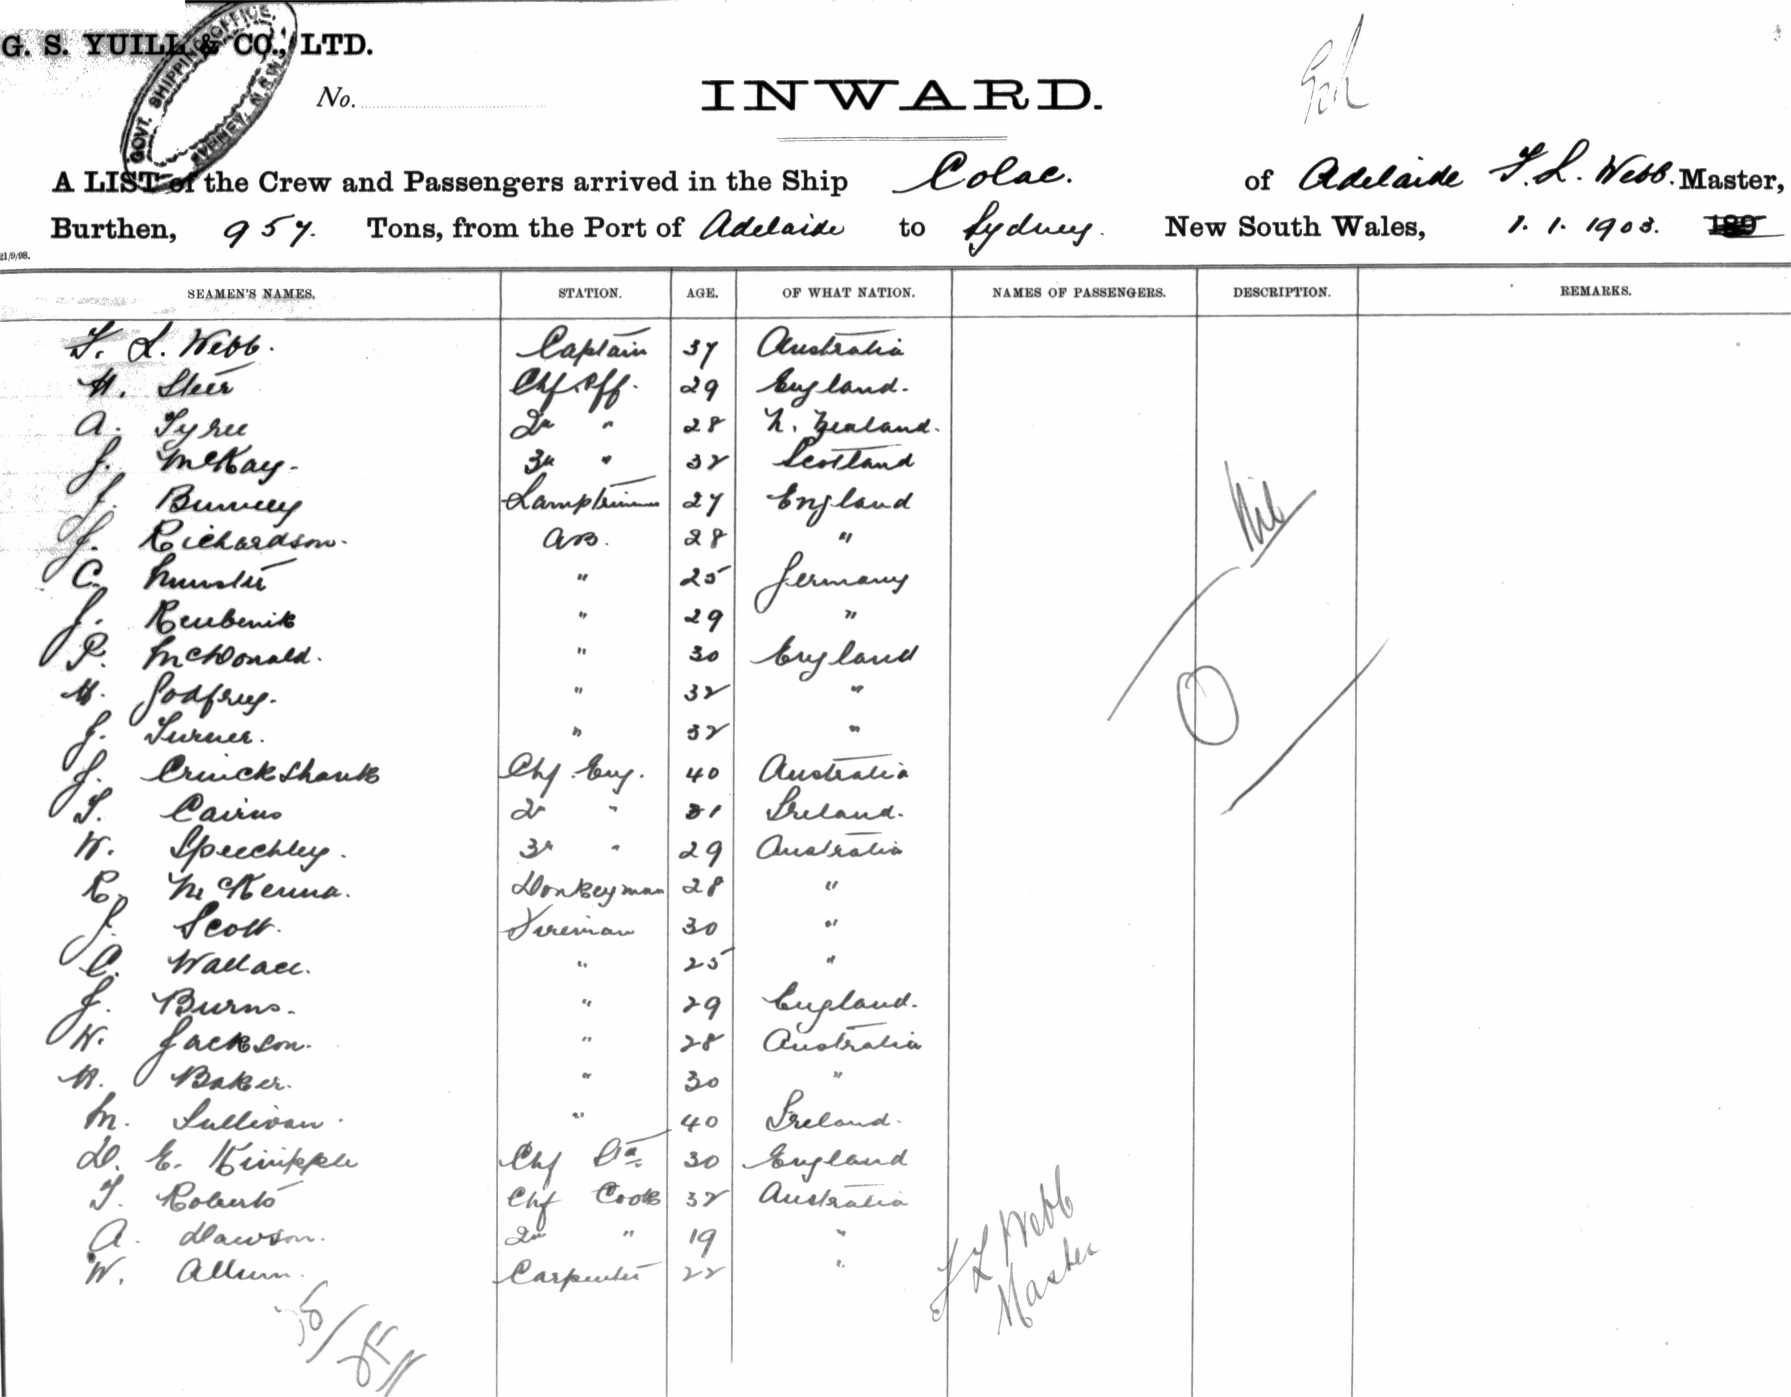 G. S. YUILL & CO., LTD.
GOVT. SHIPPING OFFICE. SYDNEY, N.S.W.
No.
INWARD.
A LIST of the Crew and Passengers arrived in the Ship Colac. of Adelaide F. L. Webb. Master,
Burthen, 957. Tons, from the Port of Adelaide to Sydney. New South Wales, 1. 1. 1903. 189
21/9/98.
SEAMEN'S NAMES. STATION. AGE. OF WHAT NATION. NAMES OF PASSENGERS. DESCRIPTION. REMARKS.
F. L. Webb. Captain 37 Australia
H. Steer Chf. Off. 29 England.
A. Tyree 2n " 28 N. Zealand.
J. McKay. 3rd " 32 Scotland
J. Lamptrimmer 27 England
J. Richardson. AB. 28 "
C. Munster " 25 Germany
J. " 29 "
P. McDonald. " 30 England
H. Godfrey. " 32 "
J. Turner. " 32 "
J. Cruickshank Chf. Eng. 40 Australia
T. Cairns 2 " 31 Ireland.
W. Speechley. 3r " 29 Australia
R. McKenna. Donkeyman 28 "
J. Scott. Fireman 30 "
C. Wallace. " 25 "
J. Burns. " 29 England.
W. Jackson. " 28 Australia
H. Baker. " 30 "
M. Sullivan. " 40 Ireland.
D. E. Kimpple Chf 30 England
T. Roberts Chf Cook 32 Australia
A. Dawson. 2n " 19 "
W. Allum. Carpenter 22 "
Nil
O
F L Webb
Master